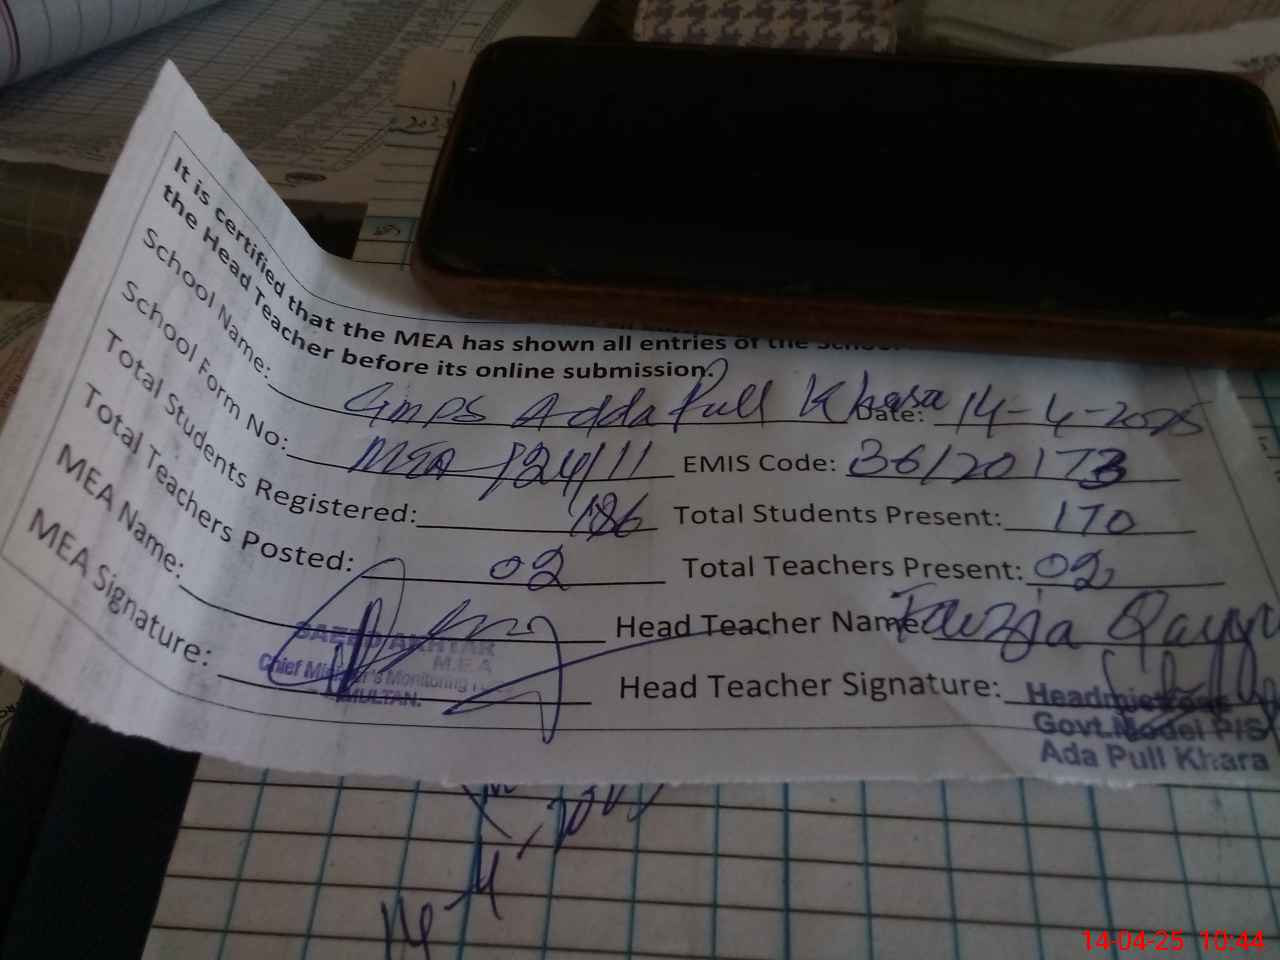 It is certified that the MEA has shown all entries of the School
the Head Teacher before its online submission.
School Name: GMPS Adda Pull Khara Date: 14-4-2025
School Form No: MEA-124/11 EMIS Code: 36120173
Total Students Registered: 186 Total Students Present: 170
Total Teachers Posted: 02 Total Teachers Present: 02
MEA Name: Head Teacher Name: Fauzia Qayyu
MEA Signature: Head Teacher Signature:
SAEED AKHTAR
M.E.A
Chief Minister's Monitoring
MULTAN.
Headmistress
Govt. Model P/S
Ada Pull Khara
14-04-25 10:44